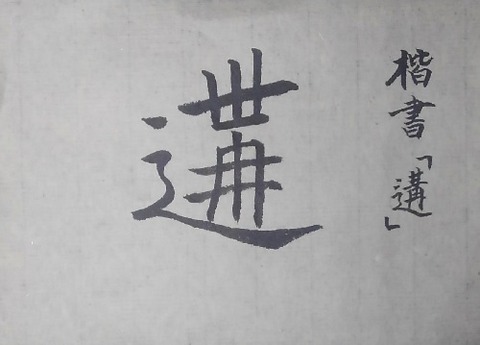 遘
楷書「遘」